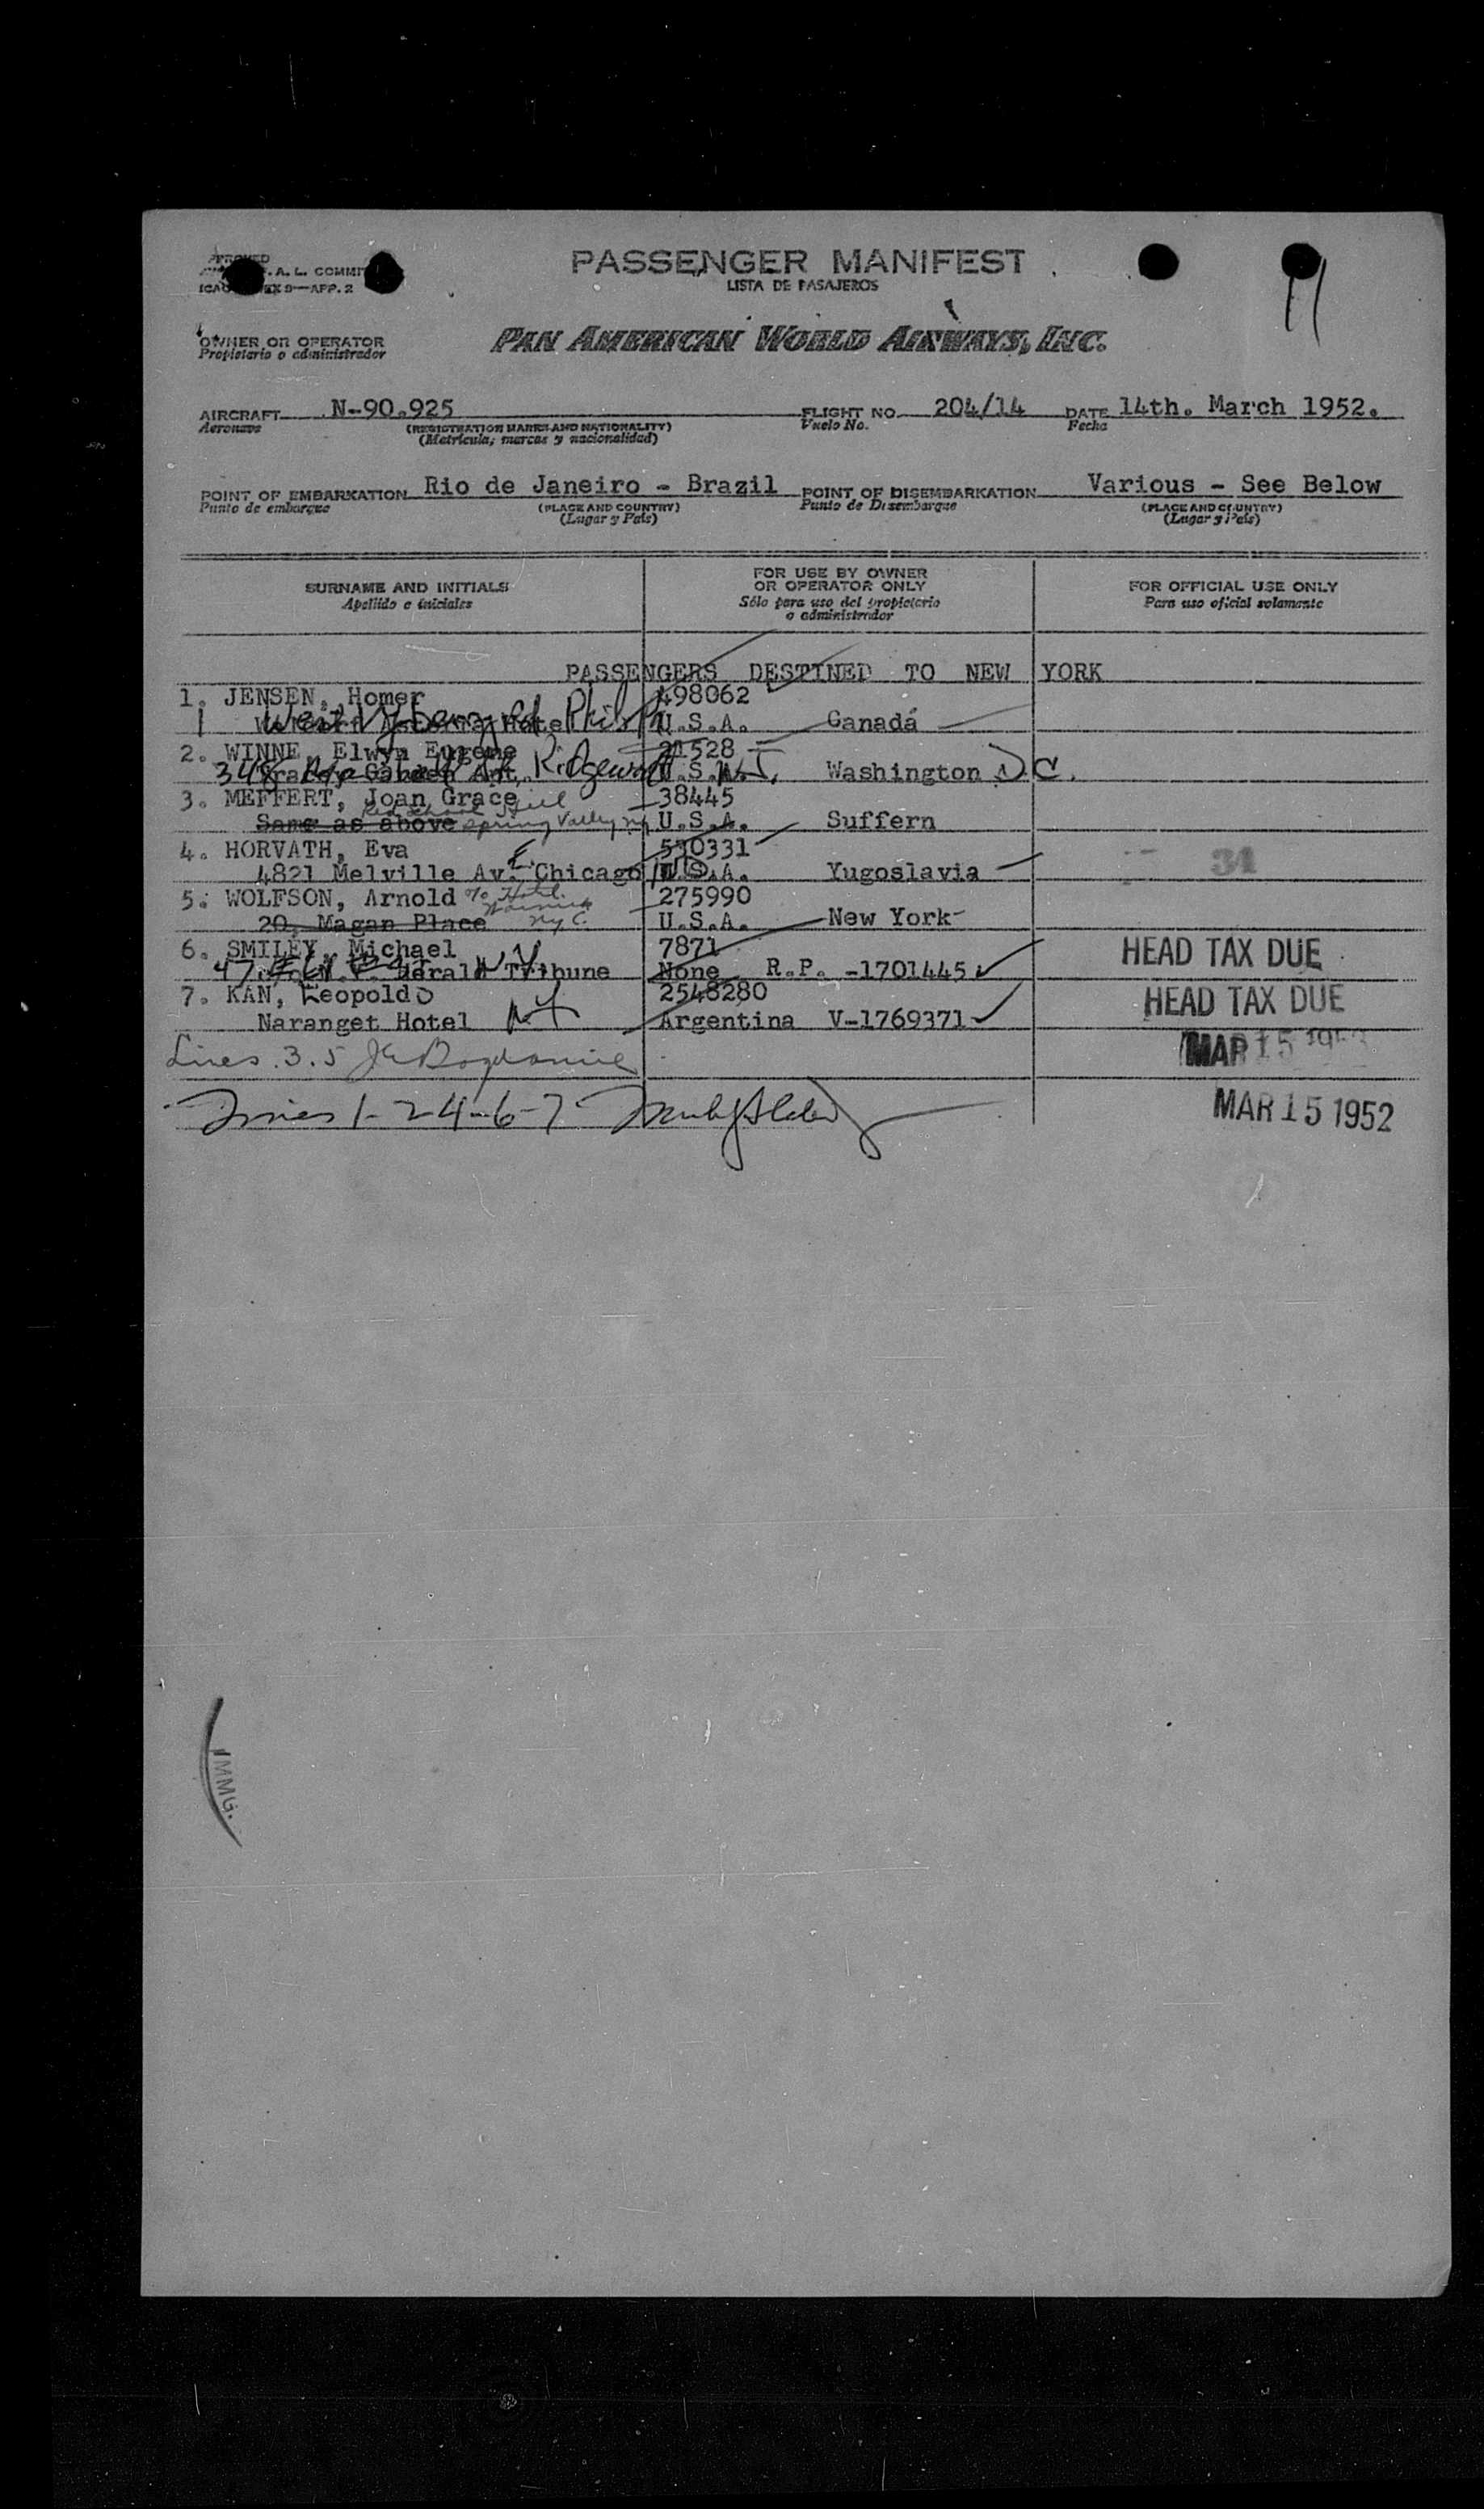 PASSENGER MANIFEST
LISTA DE PASAJEROS
A. L. COMMIT
9—APP. 2
OWNER OR OPERATOR
Propietario o administrador
PAN AMERICAN WORLD AIRWAYS, INC.
AIRCRAFT N-90.925 FLIGHT NO. 204/14 DATE 14th. March 1952.
Aeronave (REGISTRATION MARKS AND NATIONALITY) Vuelo No. Fecha
(Matrícula, marcas y nacionalidad)
POINT OF EMBARKATION Rio de Janeiro - Brazil POINT OF DISEMBARKATION Various - See Below
Punto de embarque (PLACE AND COUNTRY) Punto de Desembarque (PLACE AND COUNTRY)
(Lugar y País) (Lugar y País)
SURNAME AND INITIALS FOR USE BY OWNER OR OPERATOR ONLY FOR OFFICIAL USE ONLY
Apellido e iniciales Sólo para uso del propietario o administrador Para uso oficial solamente
PASSENGERS DESTINED TO NEW YORK
1. JENSEN, Homer 498062
U.S.A. Canadá
2. WINNE, Elwyn Eugene 21528
348 Ridgewood N.J. U.S.A. Washington D.C.
3. MEFFERT, Joan Grace 38445
Same as above Spring Valley NY U.S.A. Suffern
4. HORVATH, Eva 530331
4821 Melville Av. E. Chicago U.S.A. Yugoslavia 34
5. WOLFSON, Arnold c/o Hotel 275990
20, Magan Place NYC. U.S.A. New York
6. SMILEY, Michael 7871 HEAD TAX DUE
47 Herald Tribune NY None R.P. -1701445
7. KAN, Leopoldo 2548280 HEAD TAX DUE
Naranget Hotel NY Argentina V-1769371
Lines 3.5 MAR 15 1952
Lines 1-2-4-6-7 MAR 15 1952
IMMG.